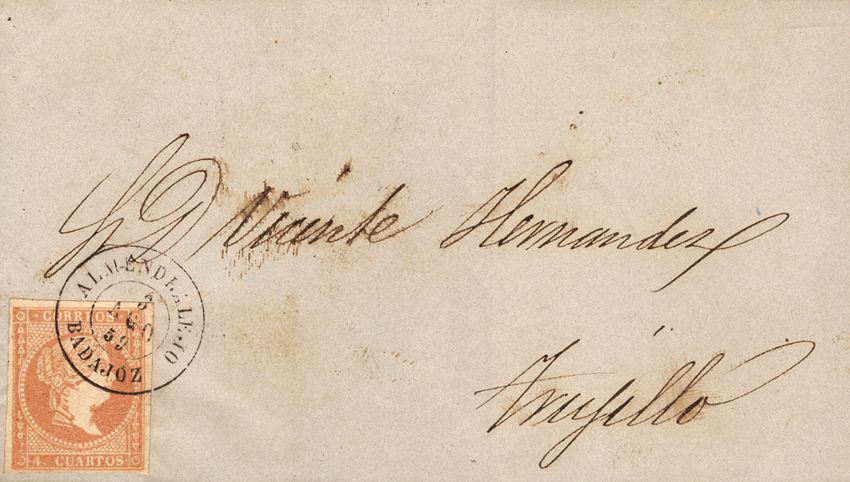 Sr D Vicente Hernandez
Trujillo
ALMENDRALEJO
3
AGO
59
BADAJOZ
CORREOS
4. CUARTOS